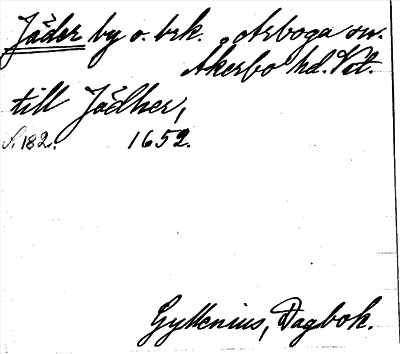 Jäder by o. brk. Arboga sn.
Åkerbo hd. Vst.
till Jädher,
s. 182. 1652.
Gyllenius, Dagbok.